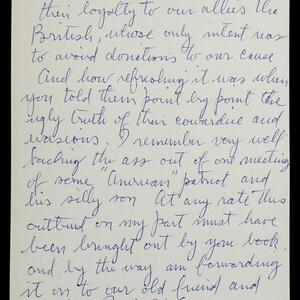 their loyalty to our allies the
British, whose only intent was
to avoid donations to our cause
And how refreshing it was when
you told them point by point the
ugly truth of their cowardice and
evasions. I remember very well
the ass out of on meeting
of some "American" patriot and
his silly son. At any rate this
outburst on my part must have
been brought out by you book
and by the way am forwarding
it on to our old friend and